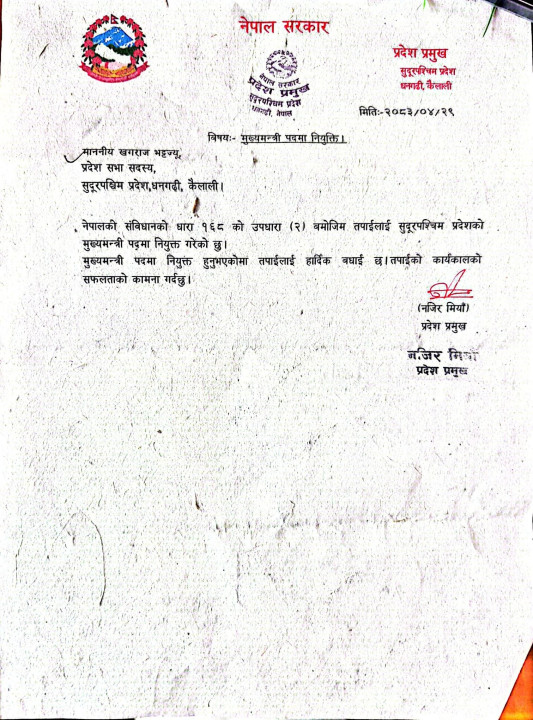 नेपाल सरकार
प्रदेश प्रमुख
सुदूरपश्चिम प्रदेश
धनगढी, कैलाली
नेपाल सरकार
प्रदेश प्रमुख
सुदूरपश्चिम प्रदेश
धनगढी, नेपाल
मितिः-२०८३/०४/२९
विषयः- मुख्यमन्त्री पदमा नियुक्ति।
माननीय खगराज भट्टज्यू,
प्रदेश सभा सदस्य,
सुदूरपश्चिम प्रदेश,धनगढी, कैलाली।
नेपालको संविधानको धारा १६८ को उपधारा (२) बमोजिम तपाईलाई सुदूरपश्चिम प्रदेशको
मुख्यमन्त्री पदमा नियुक्त गरेको छु।
मुख्यमन्त्री पदमा नियुक्त हुनुभएकोमा तपाईलाई हार्दिक बधाई छ।तपाईको कार्यकालको
सफलताको कामना गर्दछु।
(नजिर मियाँ)
प्रदेश प्रमुख
नजिर मियाँ
प्रदेश प्रमुख